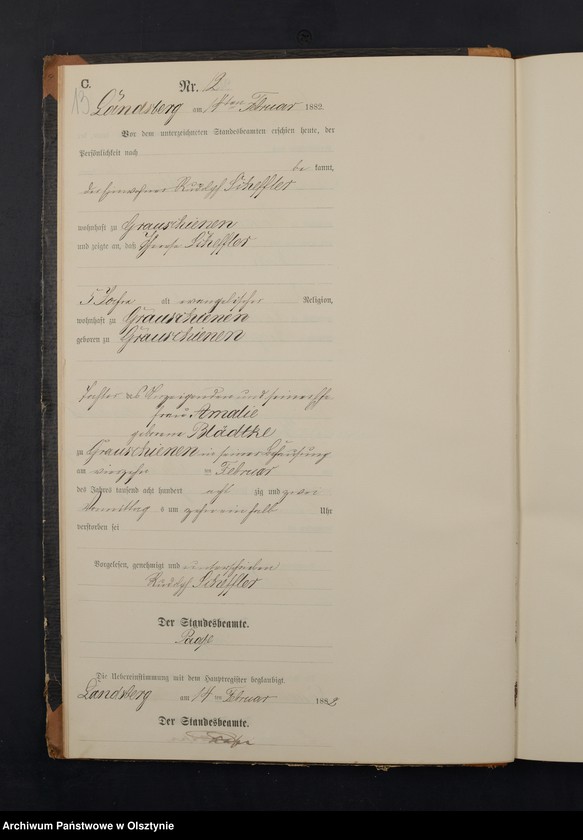 C.
Nr. 12
13
Landsberg am 17ten Februar 1882.
Vor dem unterzeichneten Standesbeamten erschien heute, der
Persönlichkeit nach
be kannt,
der Rudolf Scheffler
wohnhaft zu Grauschienen
und zeigte an, daß Scheffler
alt evangelischer Religion,
wohnhaft zu Grauschienen
geboren zu Grauschienen
Tochter des Anzeigenden und seiner Ehe
frau Amalie
geborene Blädtke
zu Grauschienen in seiner Behausung
am vierzehn ten Februar
des Jahres tausend acht hundert acht zig und zwei
Vormittag s um zehn einhalb Uhr
verstorben sei
Vorgelesen, genehmigt und unterschrieben
Rudolf Scheffler
Der Standesbeamte.
Die Uebereinstimmung mit dem Hauptregister beglaubigt.
Landsberg am 17 ten Februar 1882
Der Standesbeamte.
Archiwum Państwowe w Olsztynie